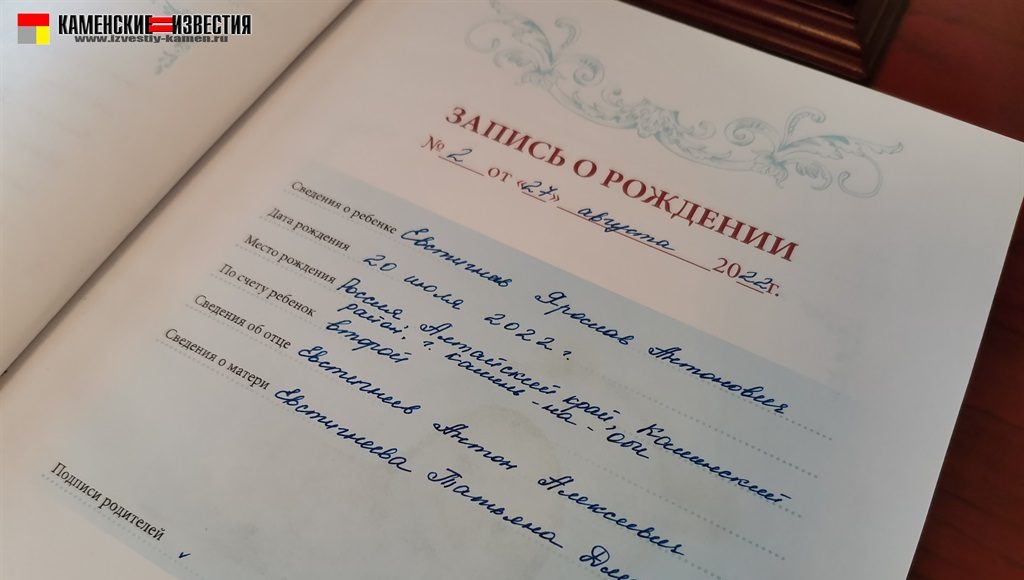 КАМЕНСКИЕ ИЗВЕСТИЯ
www.izvestiy-kamen.ru
ЗАПИСЬ О РОЖДЕНИИ
№ 2 от «27» августа 2022 г.
Сведения о ребенке Евстигнеев Ярослав Антонович
Дата рождения 20 июля 2022 г.
Место рождения Россия, Алтайский край, Каменский
район, г. Камень-на-Оби
По счету ребенок второй
Сведения об отце Евстигнеев Антон Алексеевич
Сведения о матери Евстигнеева Татьяна
Подписи родителей